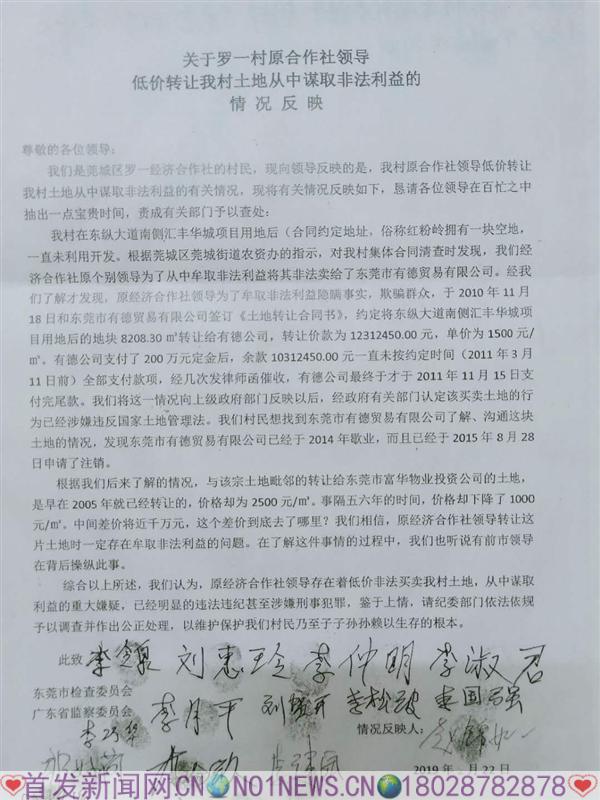 关于罗一村原合作社领导
低价转让我村土地从中谋取非法利益的
情 况 反 映
尊敬的各位领导：
我们是莞城区罗一经济合作社的村民，现向领导反映的是，我村原合作社领导低价转让
我村土地从中谋取非法利益的有关情况，现将有关情况反映如下，恳请各位领导在百忙之中
抽出一点宝贵时间，责成有关部门予以查处：
我村在东纵大道南侧汇丰华城项目用地后（合同约定地址，俗称红粉岭拥有一块空地，
一直未利用开发。根据莞城区莞城街道农资办的指示，对我村集体合同清查时发现，我们经
济合作社原个别领导为了从中牟取非法利益将其非法卖给了东莞市有德贸易有限公司。经我
们了解才发现，原经济合作社领导为了牟取非法利益隐瞒事实，欺骗群众，于 2010 年 11 月
18 日和东莞市有德贸易有限公司签订《土地转让合同书》，约定将东纵大道南侧汇丰华城项
目用地后的地块 8208.30 ㎡转让给有德公司，转让价款为 12312450.00 元，单价为 1500 元/
㎡。有德公司支付了 200 万元定金后，余款 10312450.00 元一直未按约定时间（2011 年 3 月
11 日前）全部支付款项，经几次发律师函催收，有德公司最终于才于 2011 年 11 月 15 日支
付完尾款。我们将这一情况向上级政府部门反映以后，经政府有关部门认定该买卖土地的行
为已经涉嫌违反国家土地管理法。我们村民想找到东莞市有德贸易有限公司了解、沟通这块
土地的情况，发现东莞市有德贸易有限公司已经于 2014 年歇业，而且已经于 2015 年 8 月 28
日申请了注销。
根据我们后来了解的情况，与该宗土地毗邻的转让给东莞市富华物业投资公司的土地，
是早在 2005 年就已经转让的，价格却为 2500 元/㎡。事隔五六年的时间，价格却下降了 1000
元/㎡。中间差价将近千万元，这个差价到底去了哪里？我们相信，原经济合作社领导转让这
片土地时一定存在牟取非法利益的问题。在了解这件事情的过程中，我们也听说有前市领导
在背后操纵此事。
综合以上所述，我们认为，原经济合作社领导存在着低价非法买卖我村土地，从中谋取
利益的重大嫌疑，已经明显的违法违纪甚至涉嫌刑事犯罪，鉴于上情，请纪委部门依法依规
予以调查并作出公正处理，以维护保护我们村民乃至子子孙孙赖以生存的根本。
此致 刘惠玲 李仲明 李淑君
东莞市检查委员会
广东省监察委员会 李月平
情况反映人：
2019 月 22 日
首发新闻网CN@NO1NEWS.CN@18028782878